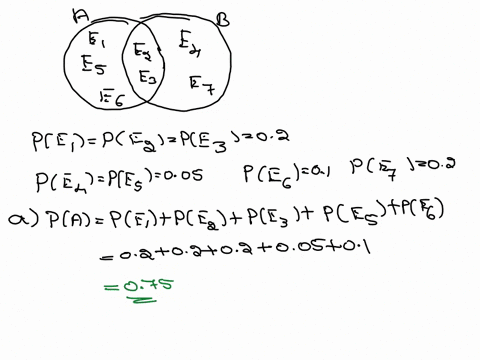 A B
E₁ E₂ E₄
E₅ E₃ E₇
E₆
P(E₁)=P(E₂)=P(E₃)=0.2
P(E₄)=P(E₅)=0.05 P(E₆)=0.1 P(E₇)=0.2
a) P(A) = P(E₁)+P(E₂)+P(E₃)+P(E₅)+P(E₆)
=0.2+0.2+0.2+0.05+0.1
=0.75